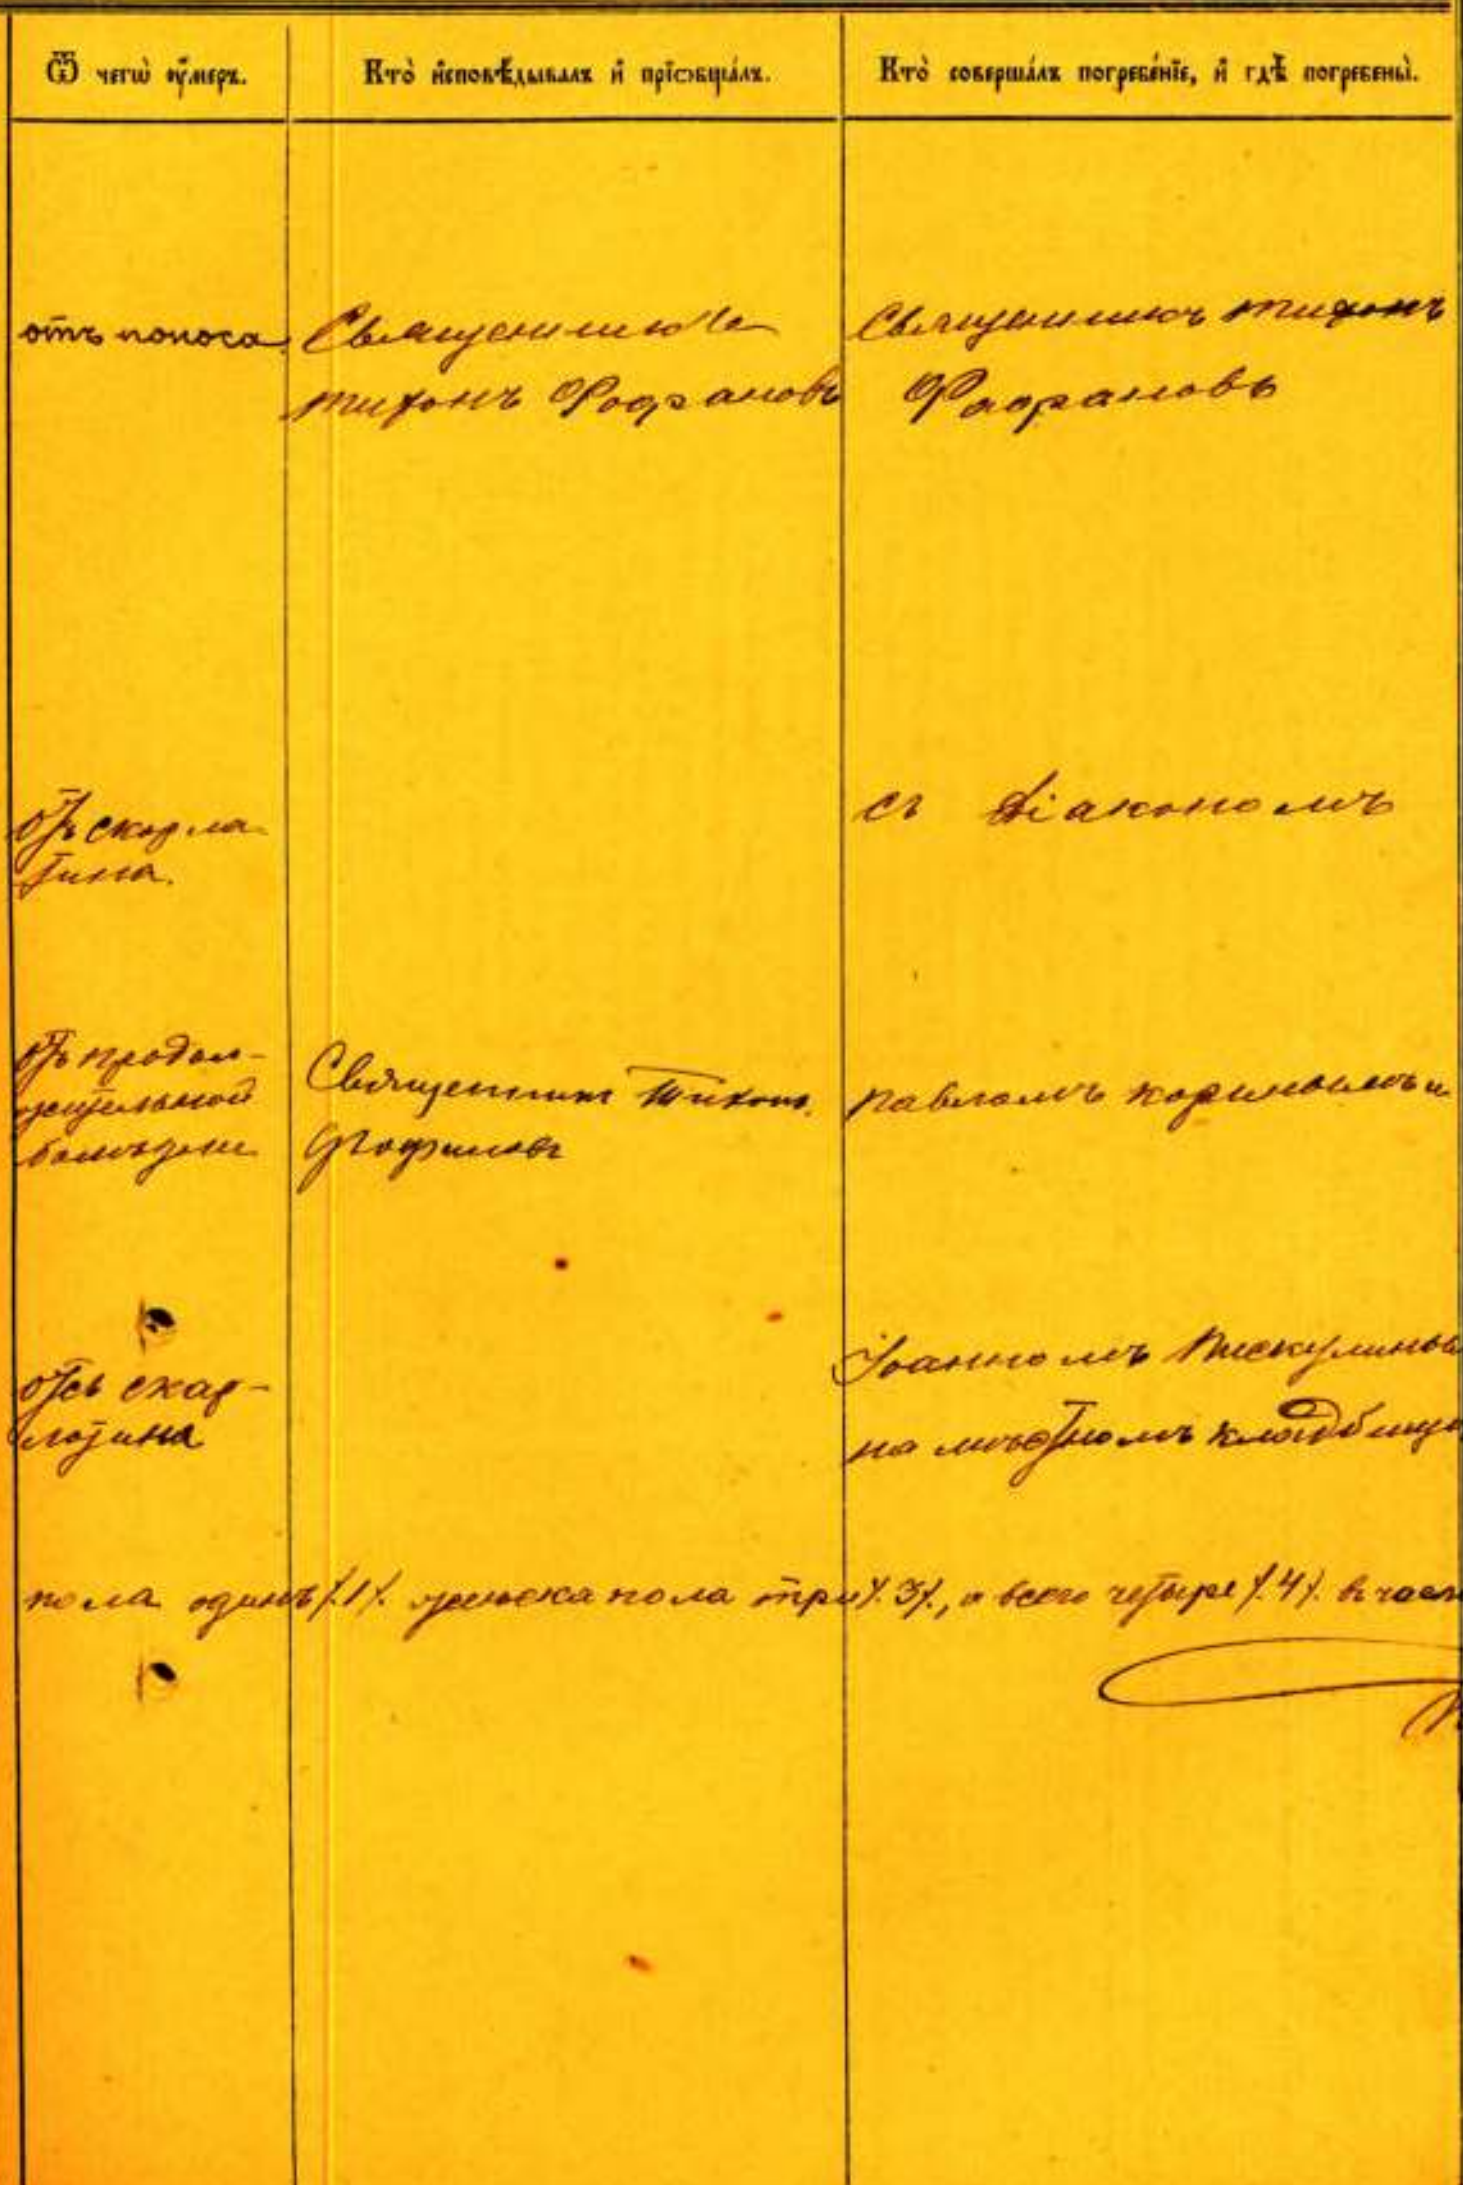 Ѿ чегѡ ᲂу҆́меръ.
Кто̀ и҆сповѣ́дывалъ и҆ прїѻбща́лъ.
Кто̀ соверша́лъ погребе́нїе, и҆ гдѣ̀ погребены̀.
отъ поноса.
Священникъ
Тихонъ
Священникъ Тихонъ
отъ скарла-
тина.
съ діакономъ
отъ продол-
жительной
болѣзни
Священникъ Тихонъ
Павломъ и
отъ скар-
латина
Іоанномъ
на мѣстномъ кладбищѣ
пола одинъ /.1/. женска пола три /.3/., а всего четыре /.4/.